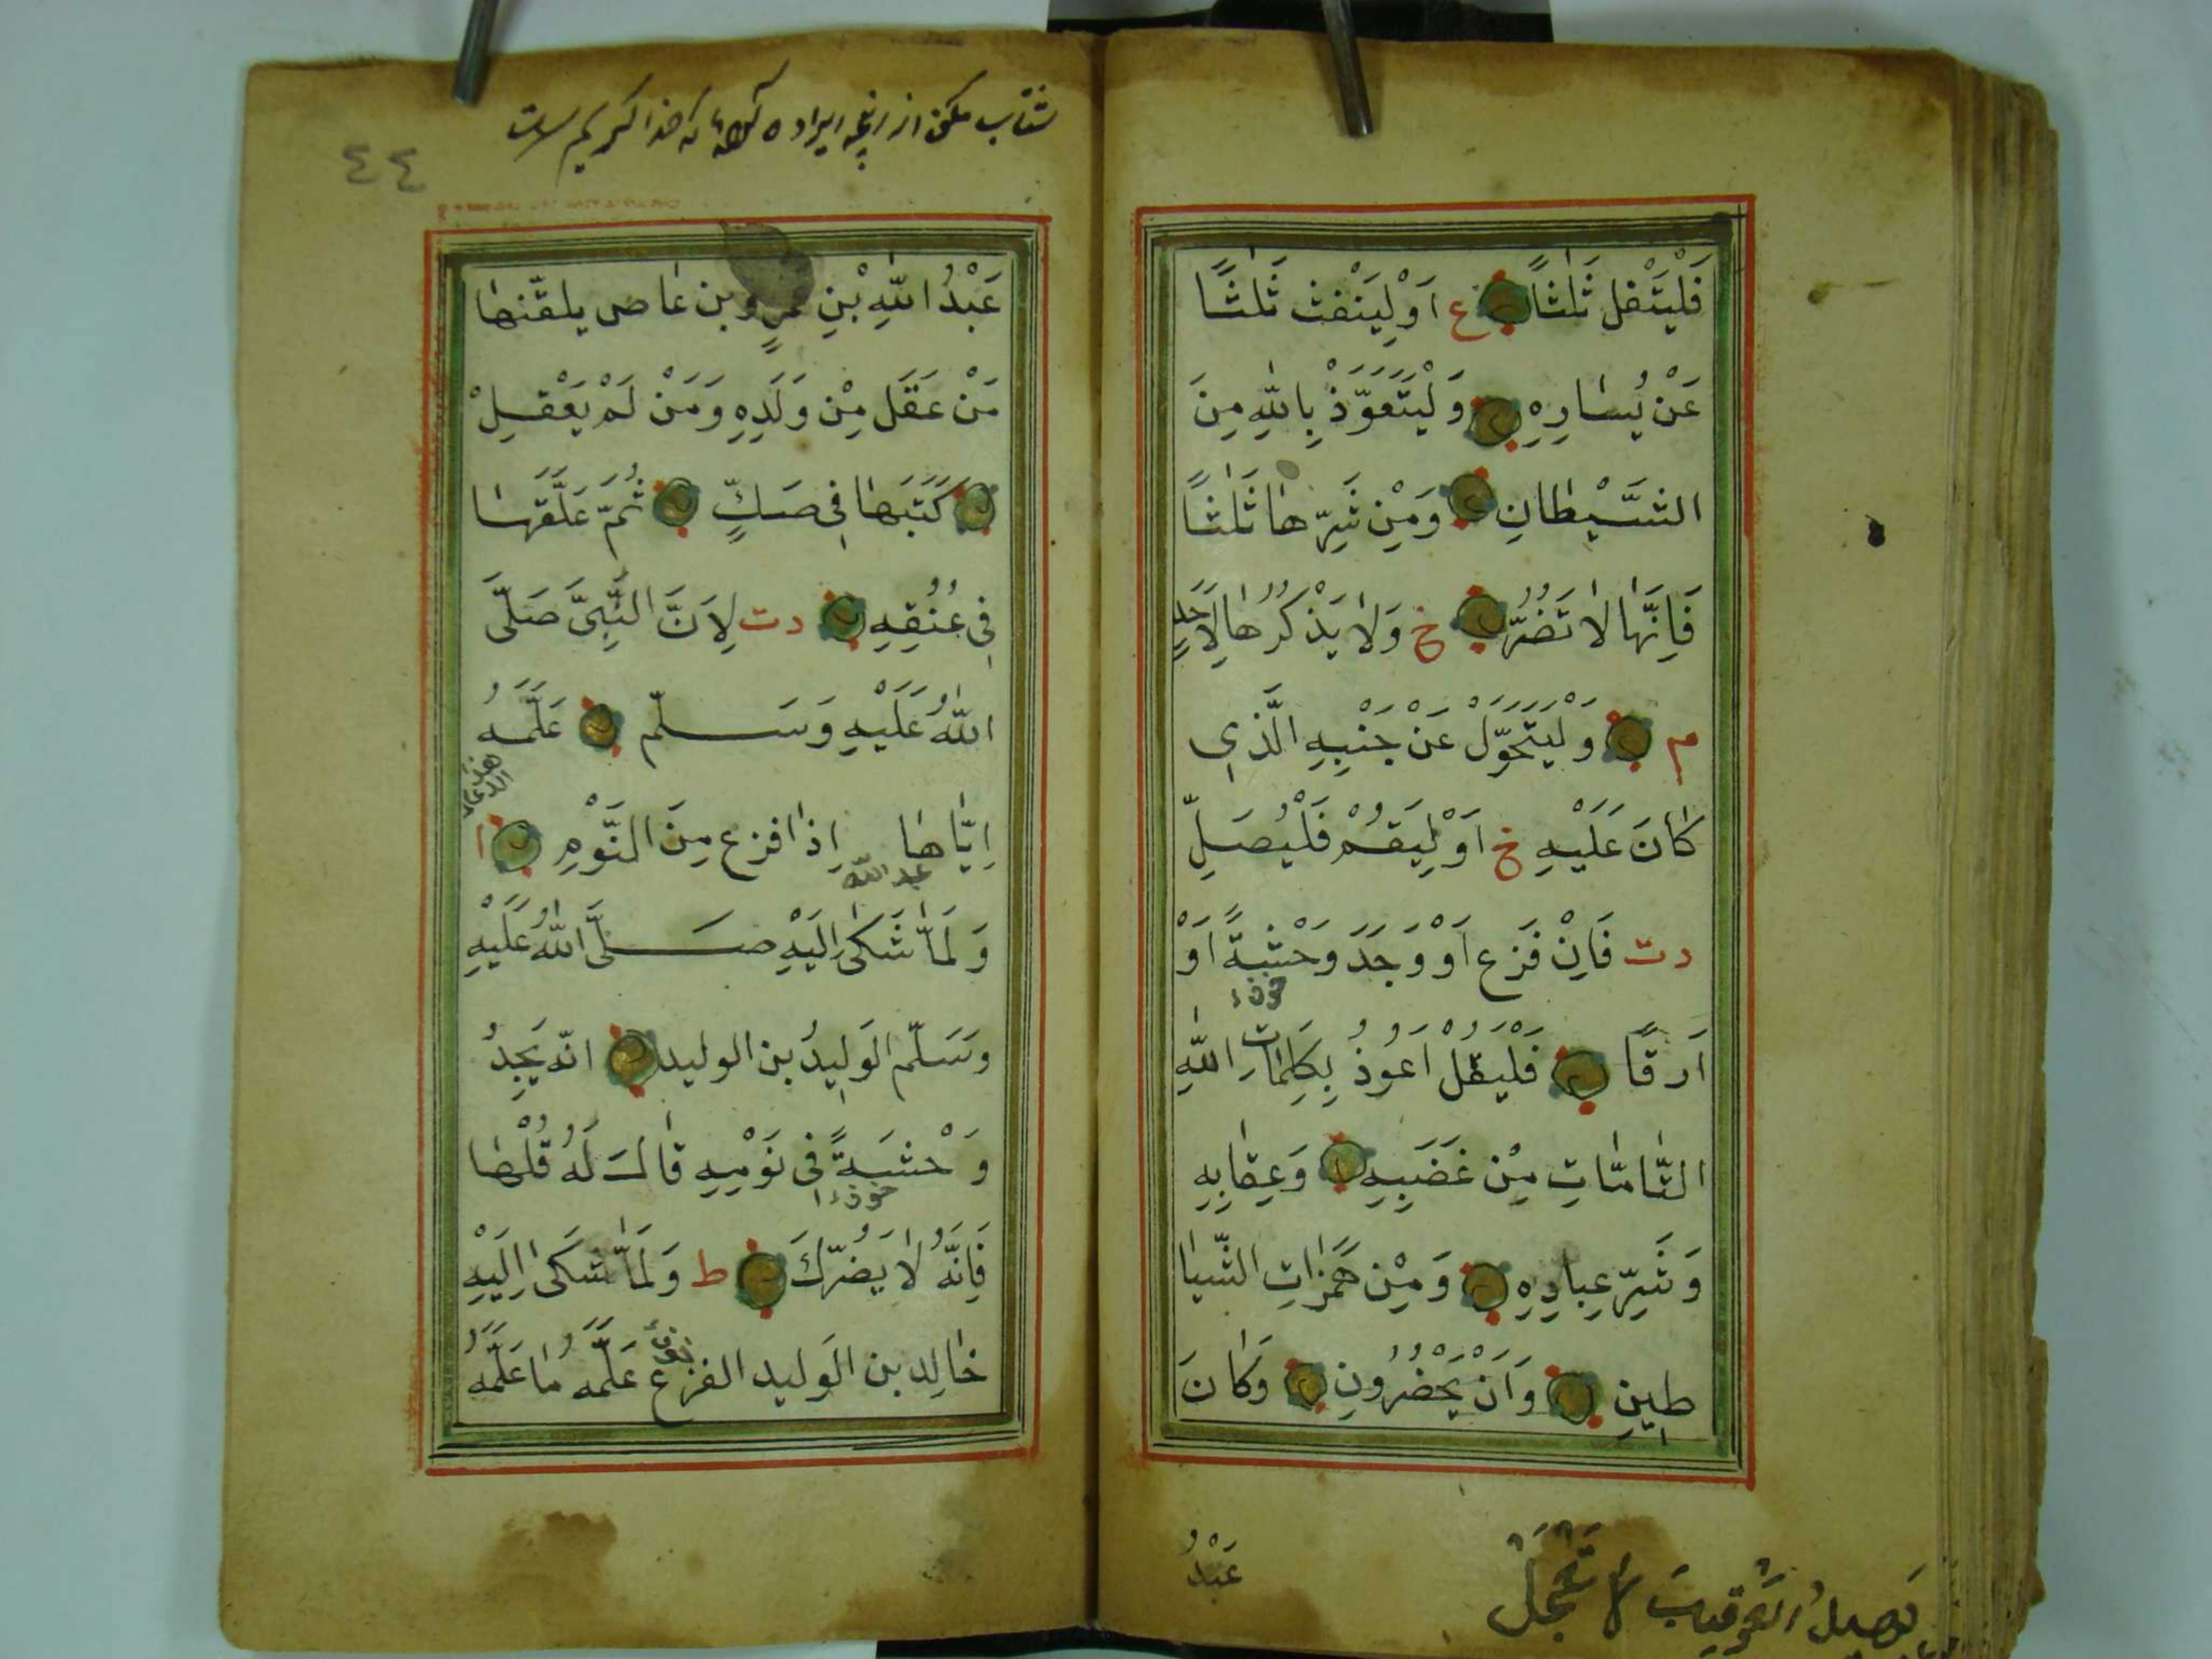 فَلْيَتْفل ثَلٰثاً ع اَوْ لِيَنْفث ثَلٰثًا
عَنْ يُسَارِهِ وَلْيَتَعَوَّذْ بِاللّٰهِ مِنَ
الشَّيْطَانِ وَمِنْ شَرِّهَا ثَلٰثًا
فَاِنَّهَا لَا تَضُرُّ خ وَلَا يَذْكُرُهَا لِاَحَدٍ
م وَلْيَتَحَوَّلْ عَنْ جَنْبِهِ الَّذِى
كَانَ عَلَيْهِ خ اَوْ لِيَقُمْ فَلْيُصَلِّ
دت فَاِنْ فَزِع اَوْ وَجَدَ وَحْشَةً اَوْ
خوف
اَرَقًا فَلْيَقُلْ اَعُوذُ بِكَلِمَاتِ اللّٰهِ
التَّامَّاتِ مِنْ غَضَبِهِ وَعِقَابِهِ
وَشَرِّ عِبَادِهِ وَمِنْ هَمَزَاتِ الشَّيَا
طِينِ وَاَنْ يَحْضُرُونِ وَكَانَ
عَبْدُ
لَا تَعْجَلْ
٤٤
عَبْدُ اللّٰهِ بْنِ عَمْرٍو بن عَاص يلقّنها
مَنْ عَقَلَ مِنْ وَلَدِهِ وَمَنْ لَمْ يَعْقِلْ
كَتَبَهَا فِى صَكٍّ ثُمَّ عَلَّقَهَا
فِى عُنُقِهِ دت لِاَنَّ النَّبِىَّ صَلَّى
اللّٰهُ عَلَيْهِ وَسَلَّم عَلَّمَهُ
هذه الدعاء
اِيَّاهَا اِذَا فزع مِنَ النَّوْمِ ا
عبد الله
وَلَمَّا شَكٰى اِلَيْهِ صَلَّى اللّٰهُ عَلَيْهِ
وَسَلَّم الوَلِيدُ بن الوليد انّه يَجِدُ
وَحْشَةً فِى نَوْمِهِ قَالَ لَهُ قُلْهَا
خوف
فَاِنَّهُ لَا يَضُرُّكَ ط وَلَمَّا شَكَى اِلَيْهِ
خَالِد بن الوَليد الفزع عَلَّمَهُ مَا عَلَّمَهُ